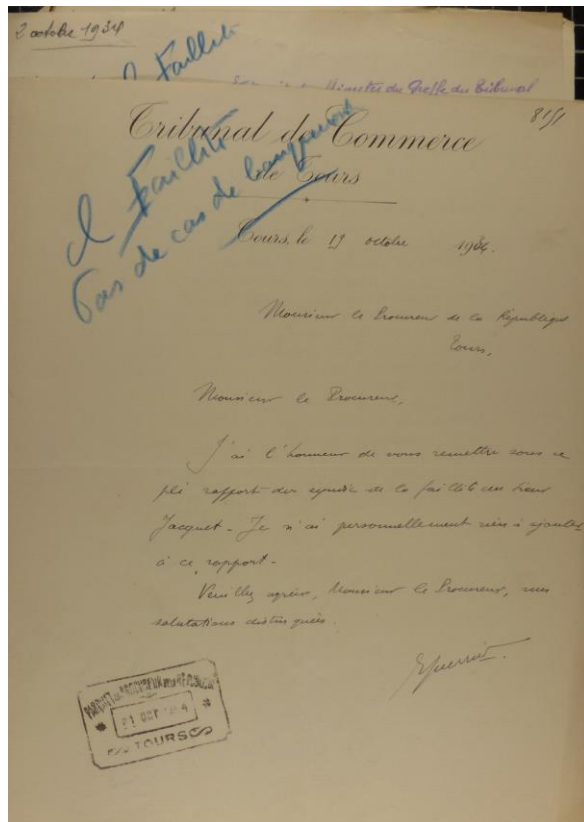 2 octobre 1934
Faillite
Minutes du Greffe du Tribunal
Tribunal de Commerce
de Tours
81/1
Faillite
Pas de cas de banqueroute
Tours, le 19 octobre 1934.
Monsieur le Procureur de la République
Tours,
Monsieur le Procureur,
J'ai l'honneur de vous remettre sous ce
pli rapport du syndic de la faillite du sieur
Jacquet - Je n'ai personnellement rien à ajouter
à ce rapport -
Veuillez agréer, Monsieur le Procureur, mes
salutations distinguées.
PARQUET DU PROCUREUR DE LA RÉPUBLIQUE
OCT
TOURS